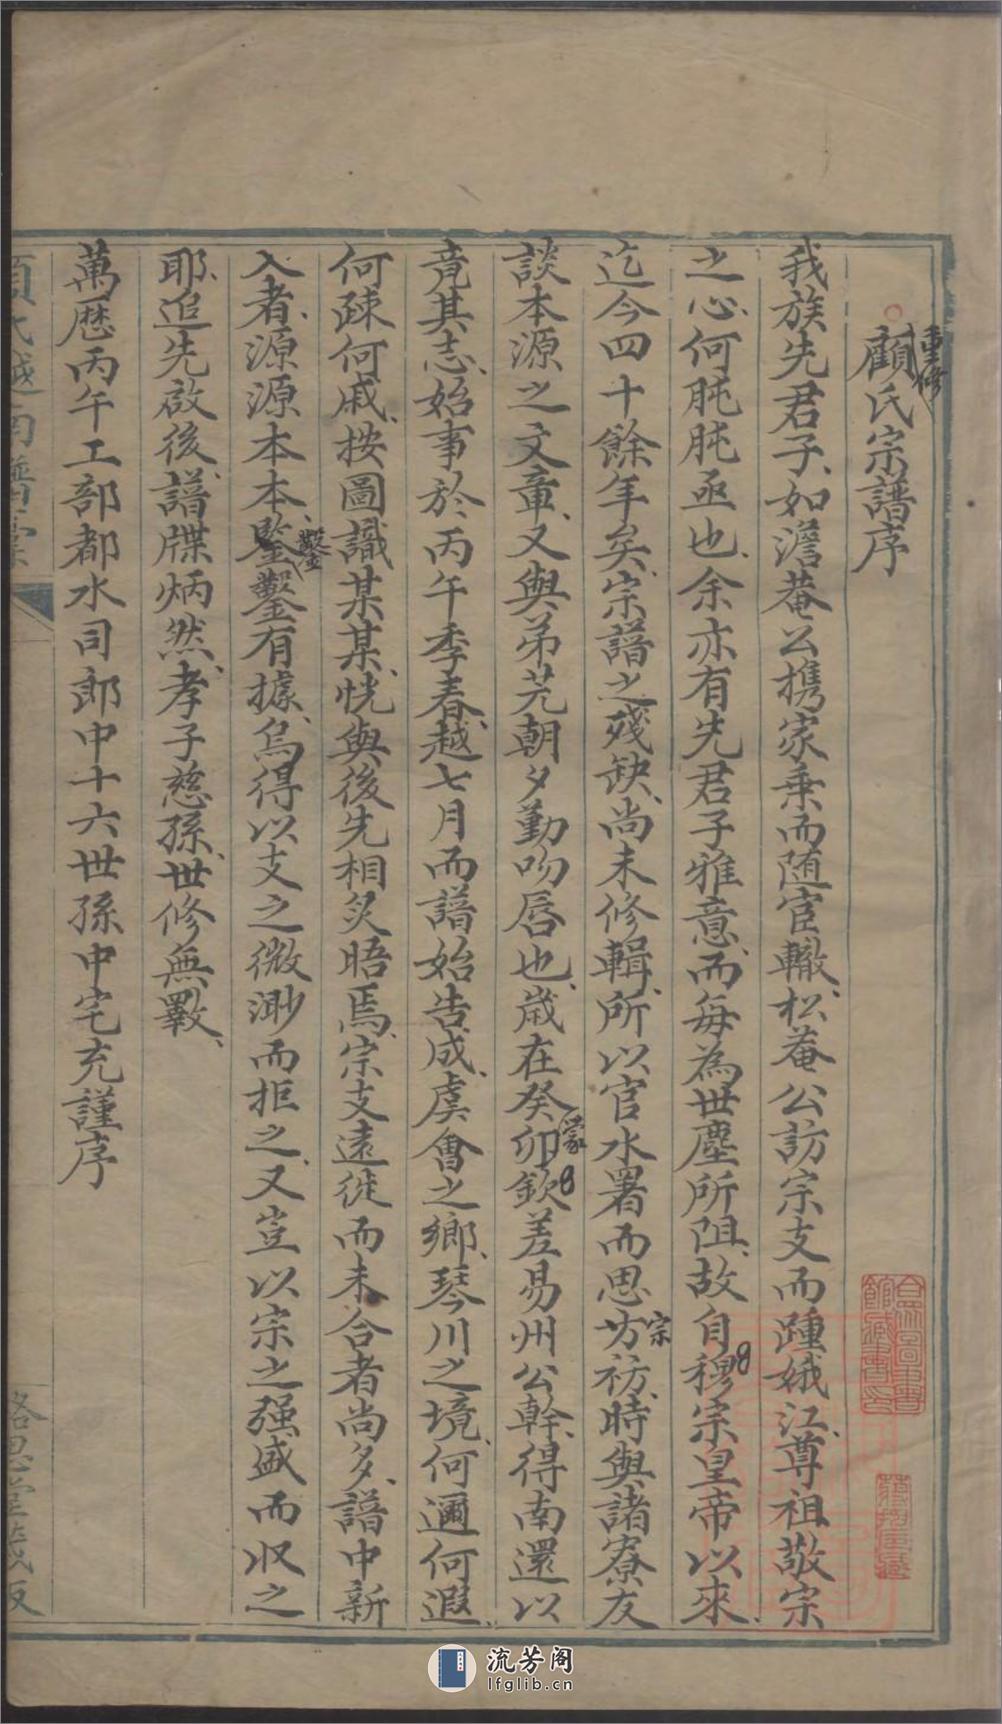 重修
顧氏宗譜序
我族先君子如澹菴公携家乘而随宦轍松菴公訪宗支而踵娥江尊祖敬宗
之心何肫肫亟也余亦有先君子雅意而每為世塵所阻故自穆宗皇帝以來
迄今四十餘年矣宗譜之殘缺尚未修輯所以官水署而思坊祊時與諸寮友
宗
談本源之文章又與弟芫朝夕勤吻唇也歲在癸卯欽差易州公幹得南還以
蒙
竟其志始事於丙午季春越七月而譜始告成虞會之鄉琴川之境何邇何遐
何疎何戚按圖識某某恍與後先相炙晤焉宗支遠徙而未合者尚多譜中新
入者源源本本鑿鑿有據烏得以支之微渺而拒之又豈以宗之强盛而收之
鑿
耶追先啟後譜牒炳然孝子慈孫世修無斁
萬厯丙午工部都水司郎中十六世孫中宅充謹序
流芳阁
lfglib.cn